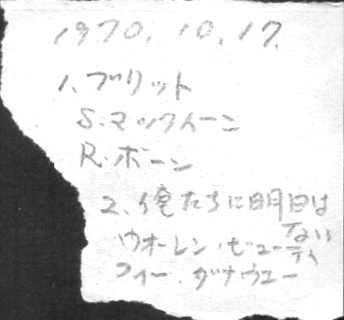 1970. 10. 17.
1. ブリット
S. マックイーン
R. ボーン
2. 俺たちに明日は
ない
ウオーレン・ビューティ
フイー. ダナウエー